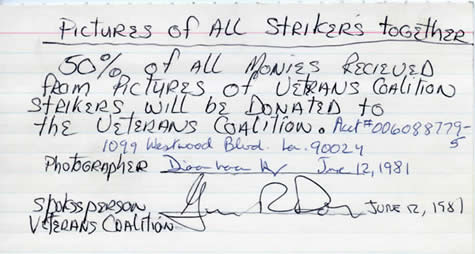 PICTURES OF ALL STRIKERS TOGETHER
50% OF ALL MONIES RECIEVED
FROM PICTURES OF VETRANS COALITION
STRIKERS WILL BE DONATED TO
THE VETERANS COALITION. Acct#006088779-
5
1099 Westwood Blvd. La. 90024
PHOTOGRAPHER June 12, 1981
SPOKESPERSON JUNE 12, 1981
VETERANS COALITION